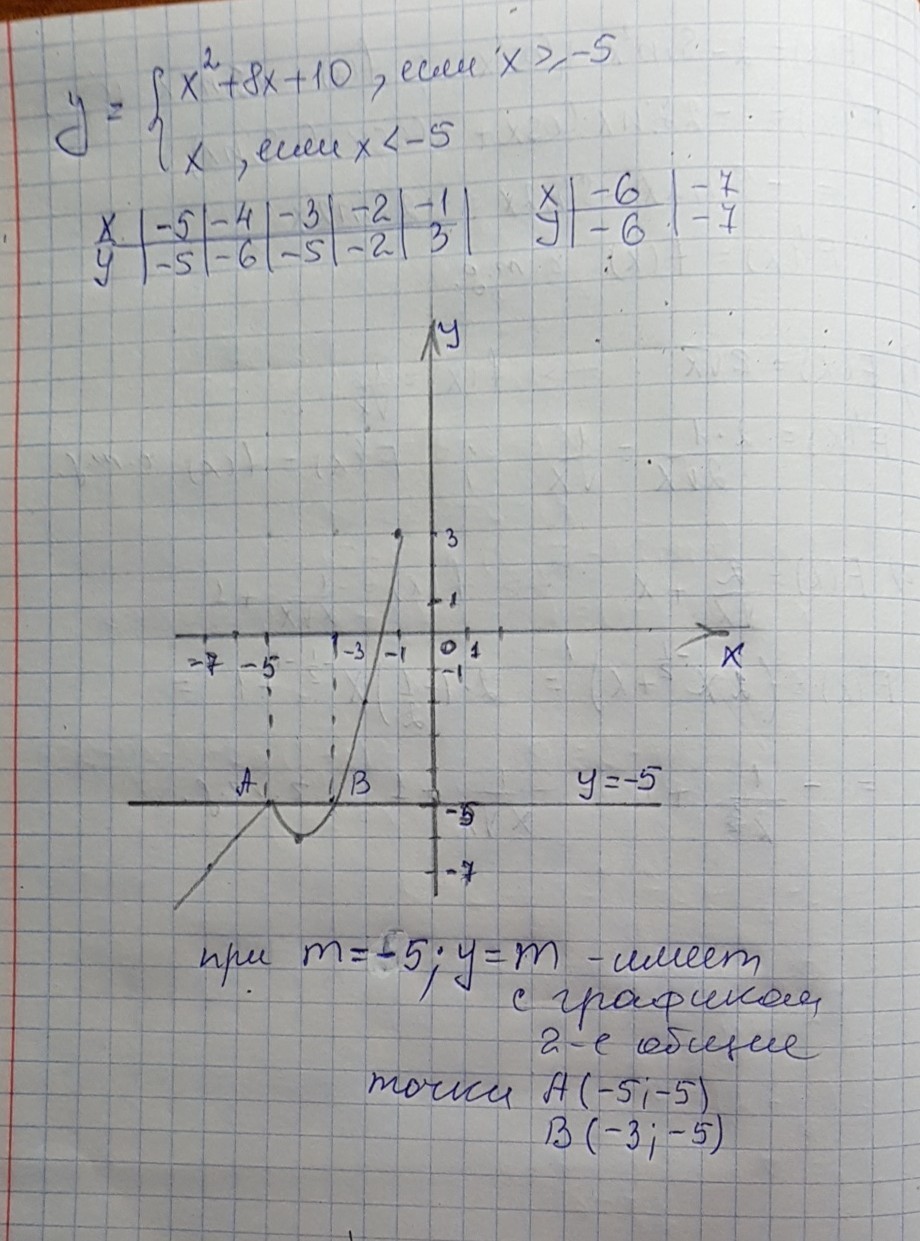 y = { x² + 8x + 10 , если x ≥ -5
x , если x < -5
x | -5 | -4 | -3 | -2 | -1 |
y | -5 | -6 | -5 | -2 | 3 |
x | -6 | -7
y | -6 | -7
y
3
1
-7 -5 -3 -1 0 1 x
-1
A B y = -5
-5
-7
при m = -5; y = m - имеет
с графиком
2-е общие
точки A (-5; -5)
B (-3; -5)